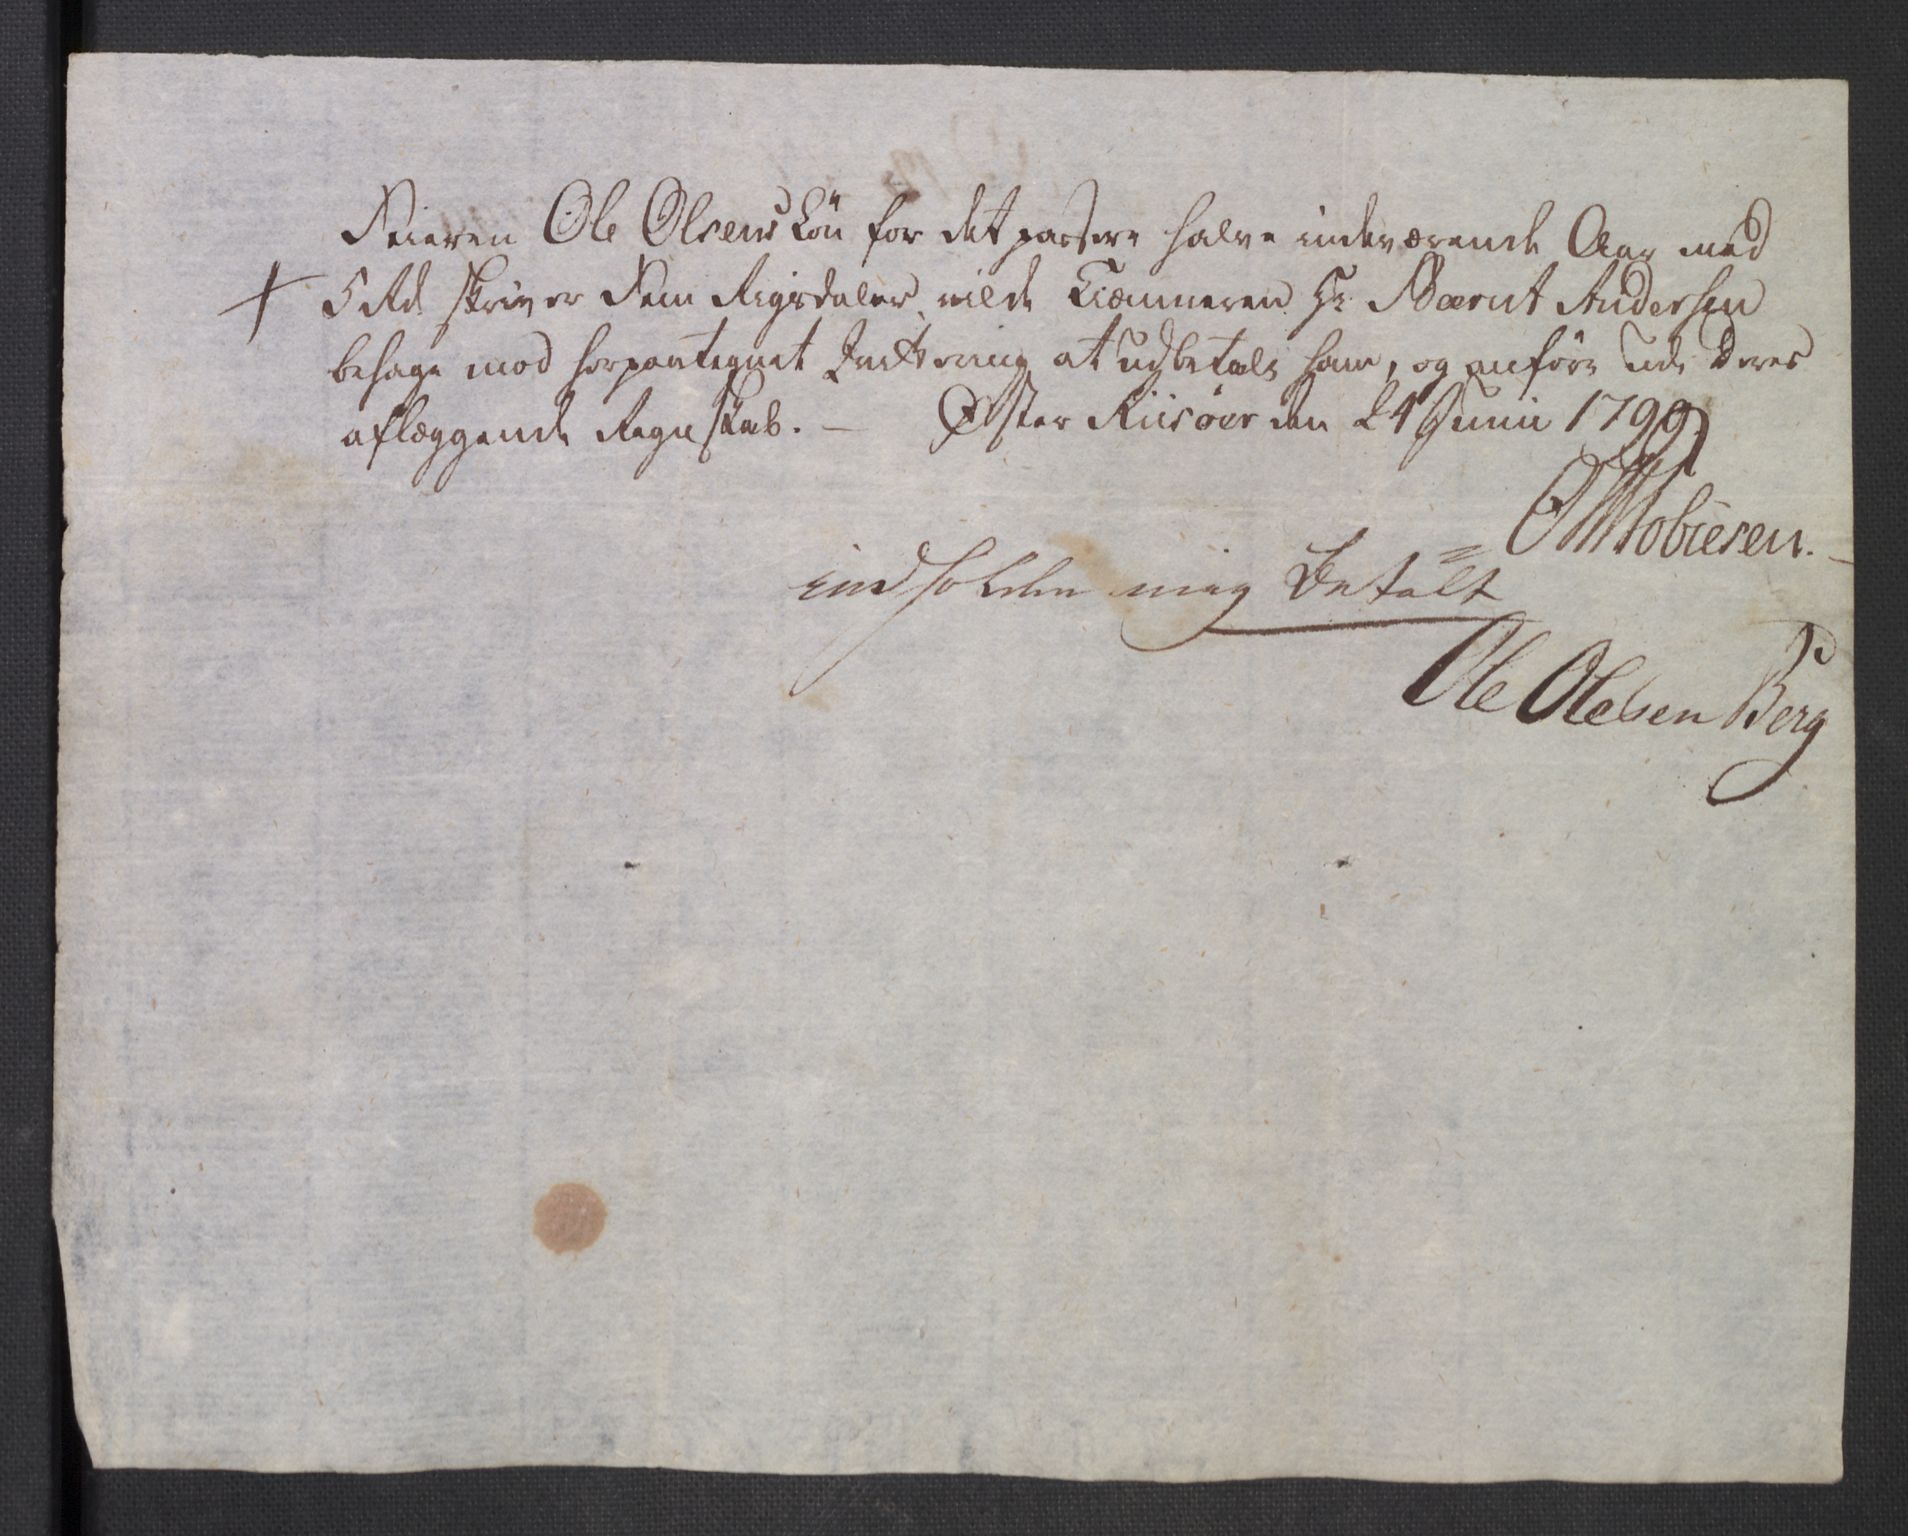 Feieren Ole Olsens Løn for det passere halve indeværende Aar med
5 Rd skriver Fem Rigsdaler vilde Kiæmneren Hr Bærnt Andersen
behage mod herpaategnet Qvittering at udbetale ham, og anføre udi Deres
aflæggende Regnskab. — Øster Riisöer den 24 Junii 1799
Tobiesen.
indholden mig Betalt
Ole Olebsen Berg